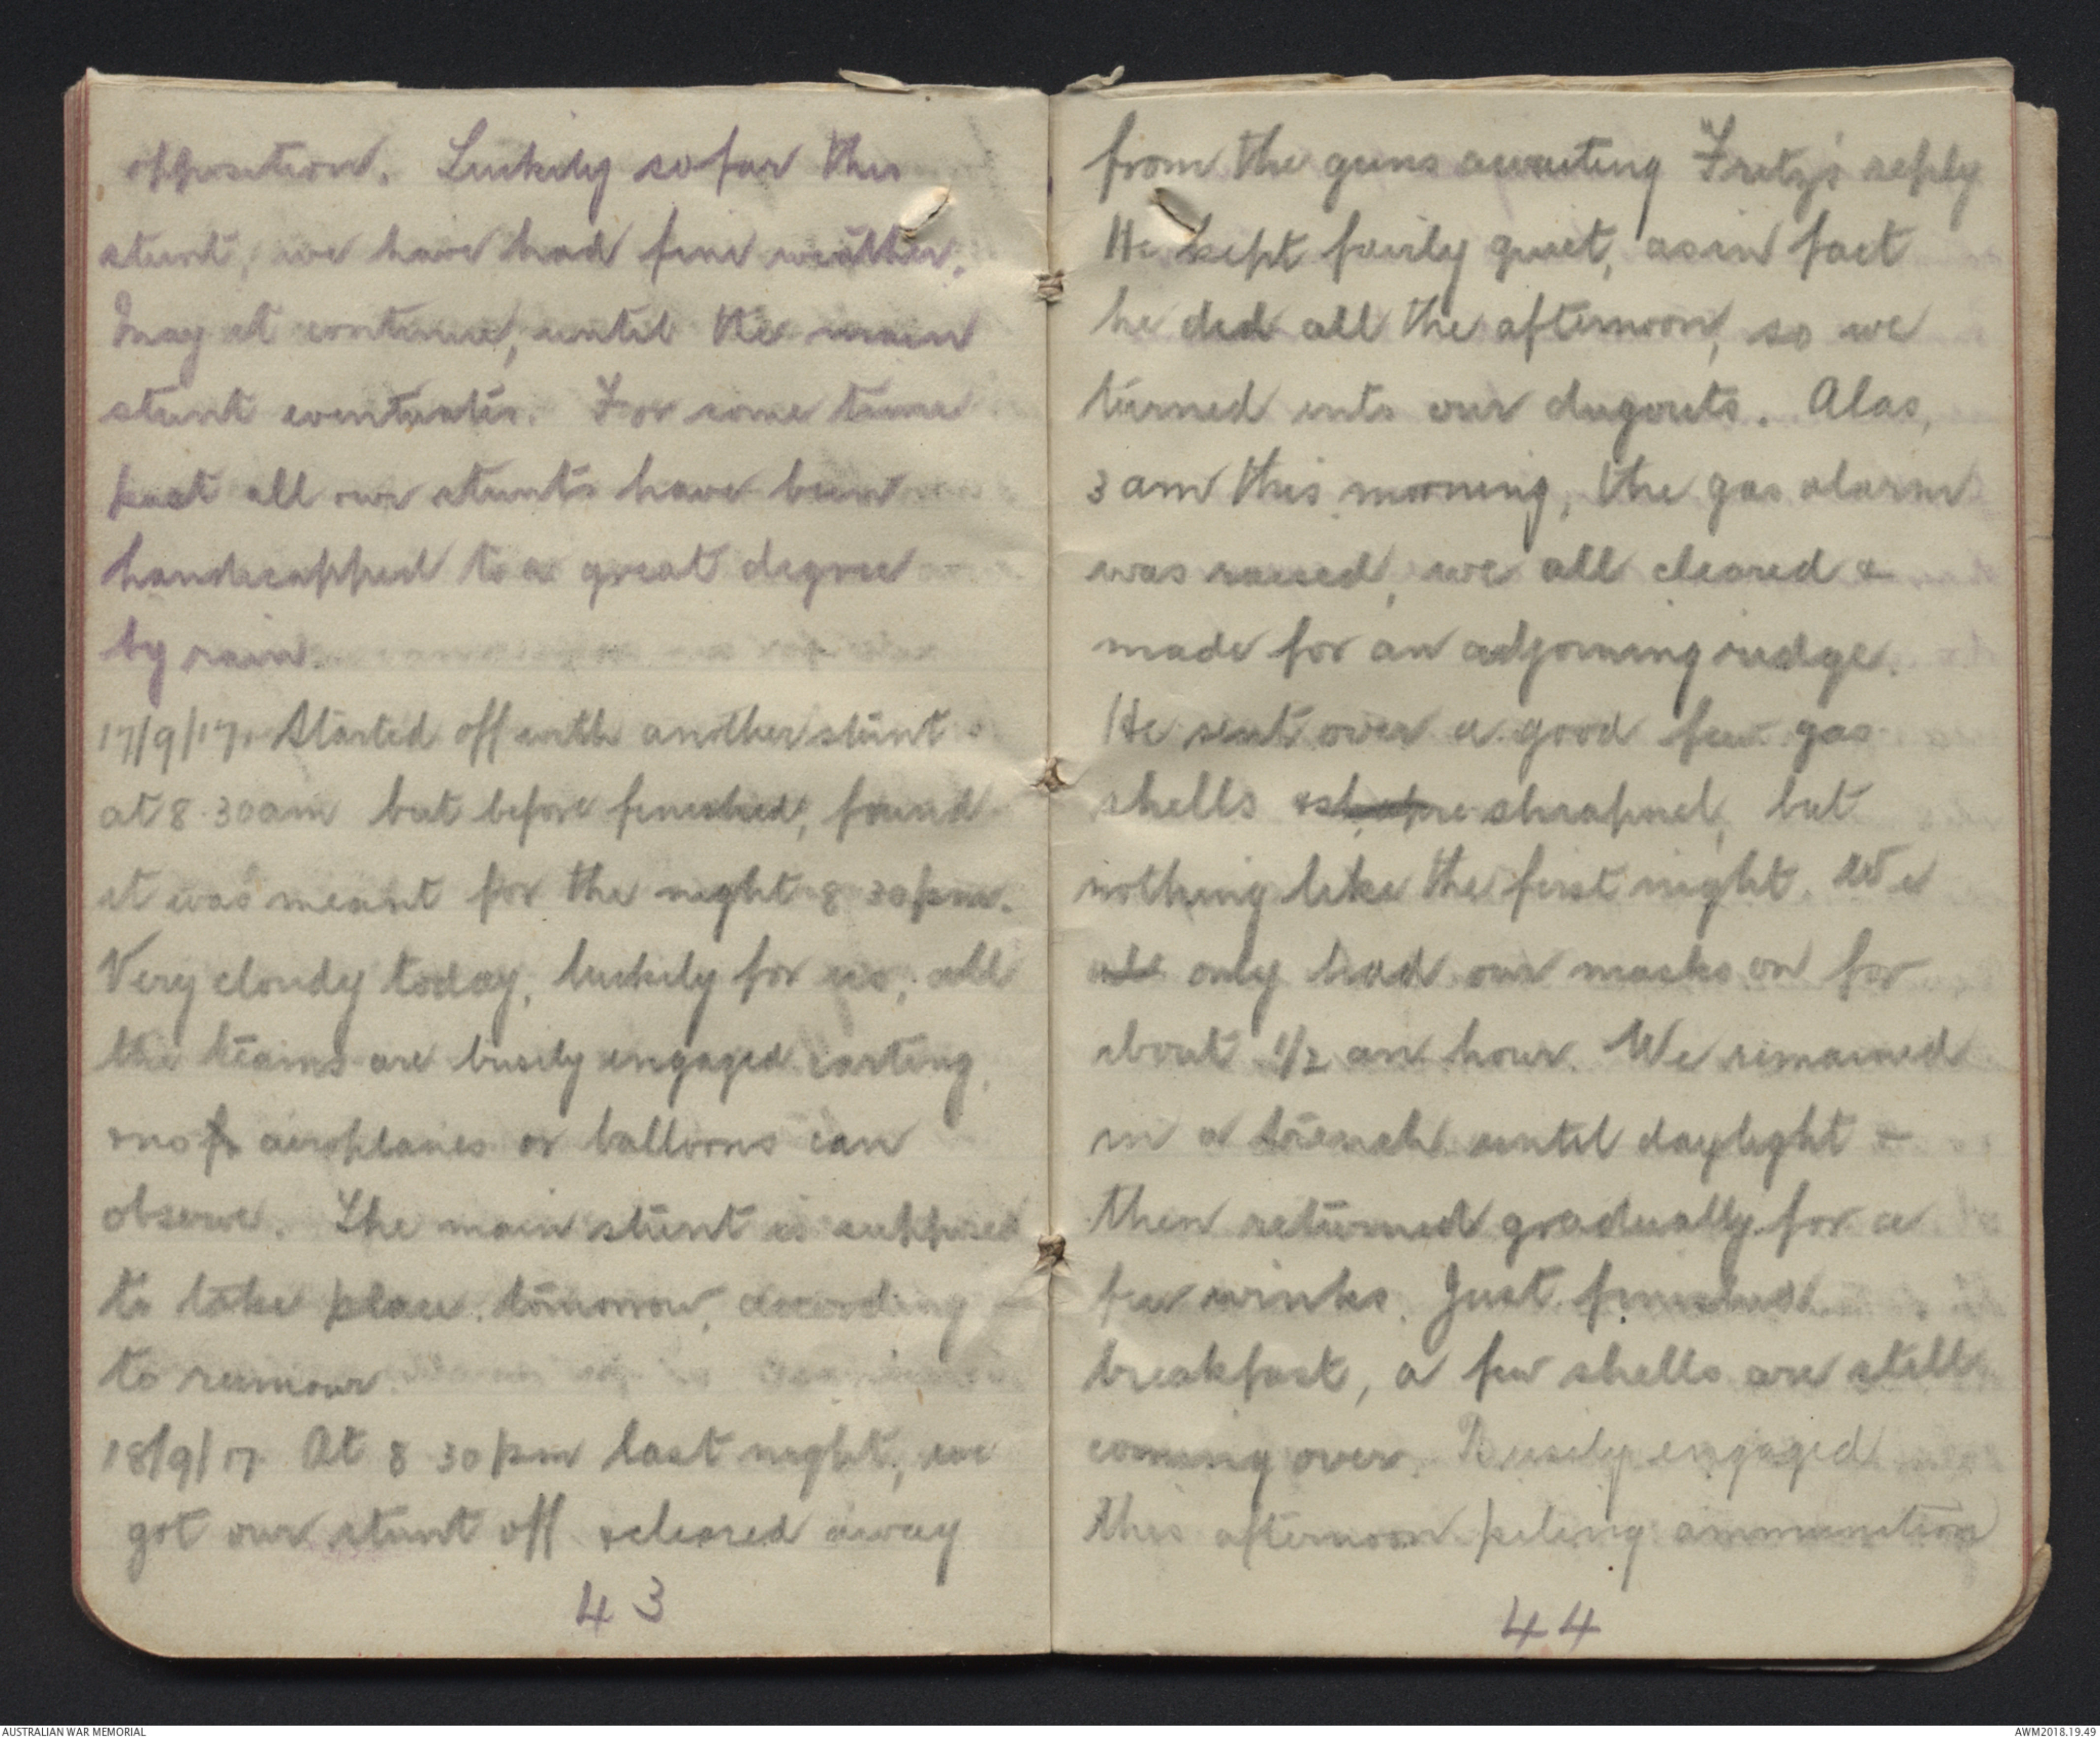 opposition. Luckily so far this
stunt, we have had fine weather.
May it continue, until the main
stunt eventuates. For some time
past all our stunts have been
handicapped to a great degree
by rain.
17/9/17. Started off with another stunt
at 8.30am but before finished, found
it was meant for the night 8 30pm.
Very cloudy today, luckily for us, all
the teams are busily engaged carting,
& no aeroplanes or balloons can
observe. The main stunt is supposed
to take place tomorrow, according
to rumour.
18/9/17 At 8 30pm last night, we
got our stunt off & cleared away
43
from the guns awaiting "Fritz's reply
He kept fairly quiet, as in fact
he did all the afternoon, so we
turned into our dugouts. Alas,
3 am this morning, the gas alarm
was raised, we all cleared &
made for an adjoining ridge.
He sent over a good few gas
shells & shrapnel, but
nothing like the first night. We
all only had our masks on for
about 1/2 an hour. We remained
in a trench until daylight &
then returned gradually for a
few winks. Just finished
breakfast, a few shells are still
coming over. Busily engaged
this afternoon piling ammunition
44
AUSTRALIAN WAR MEMORIAL
AWM2018.19.49